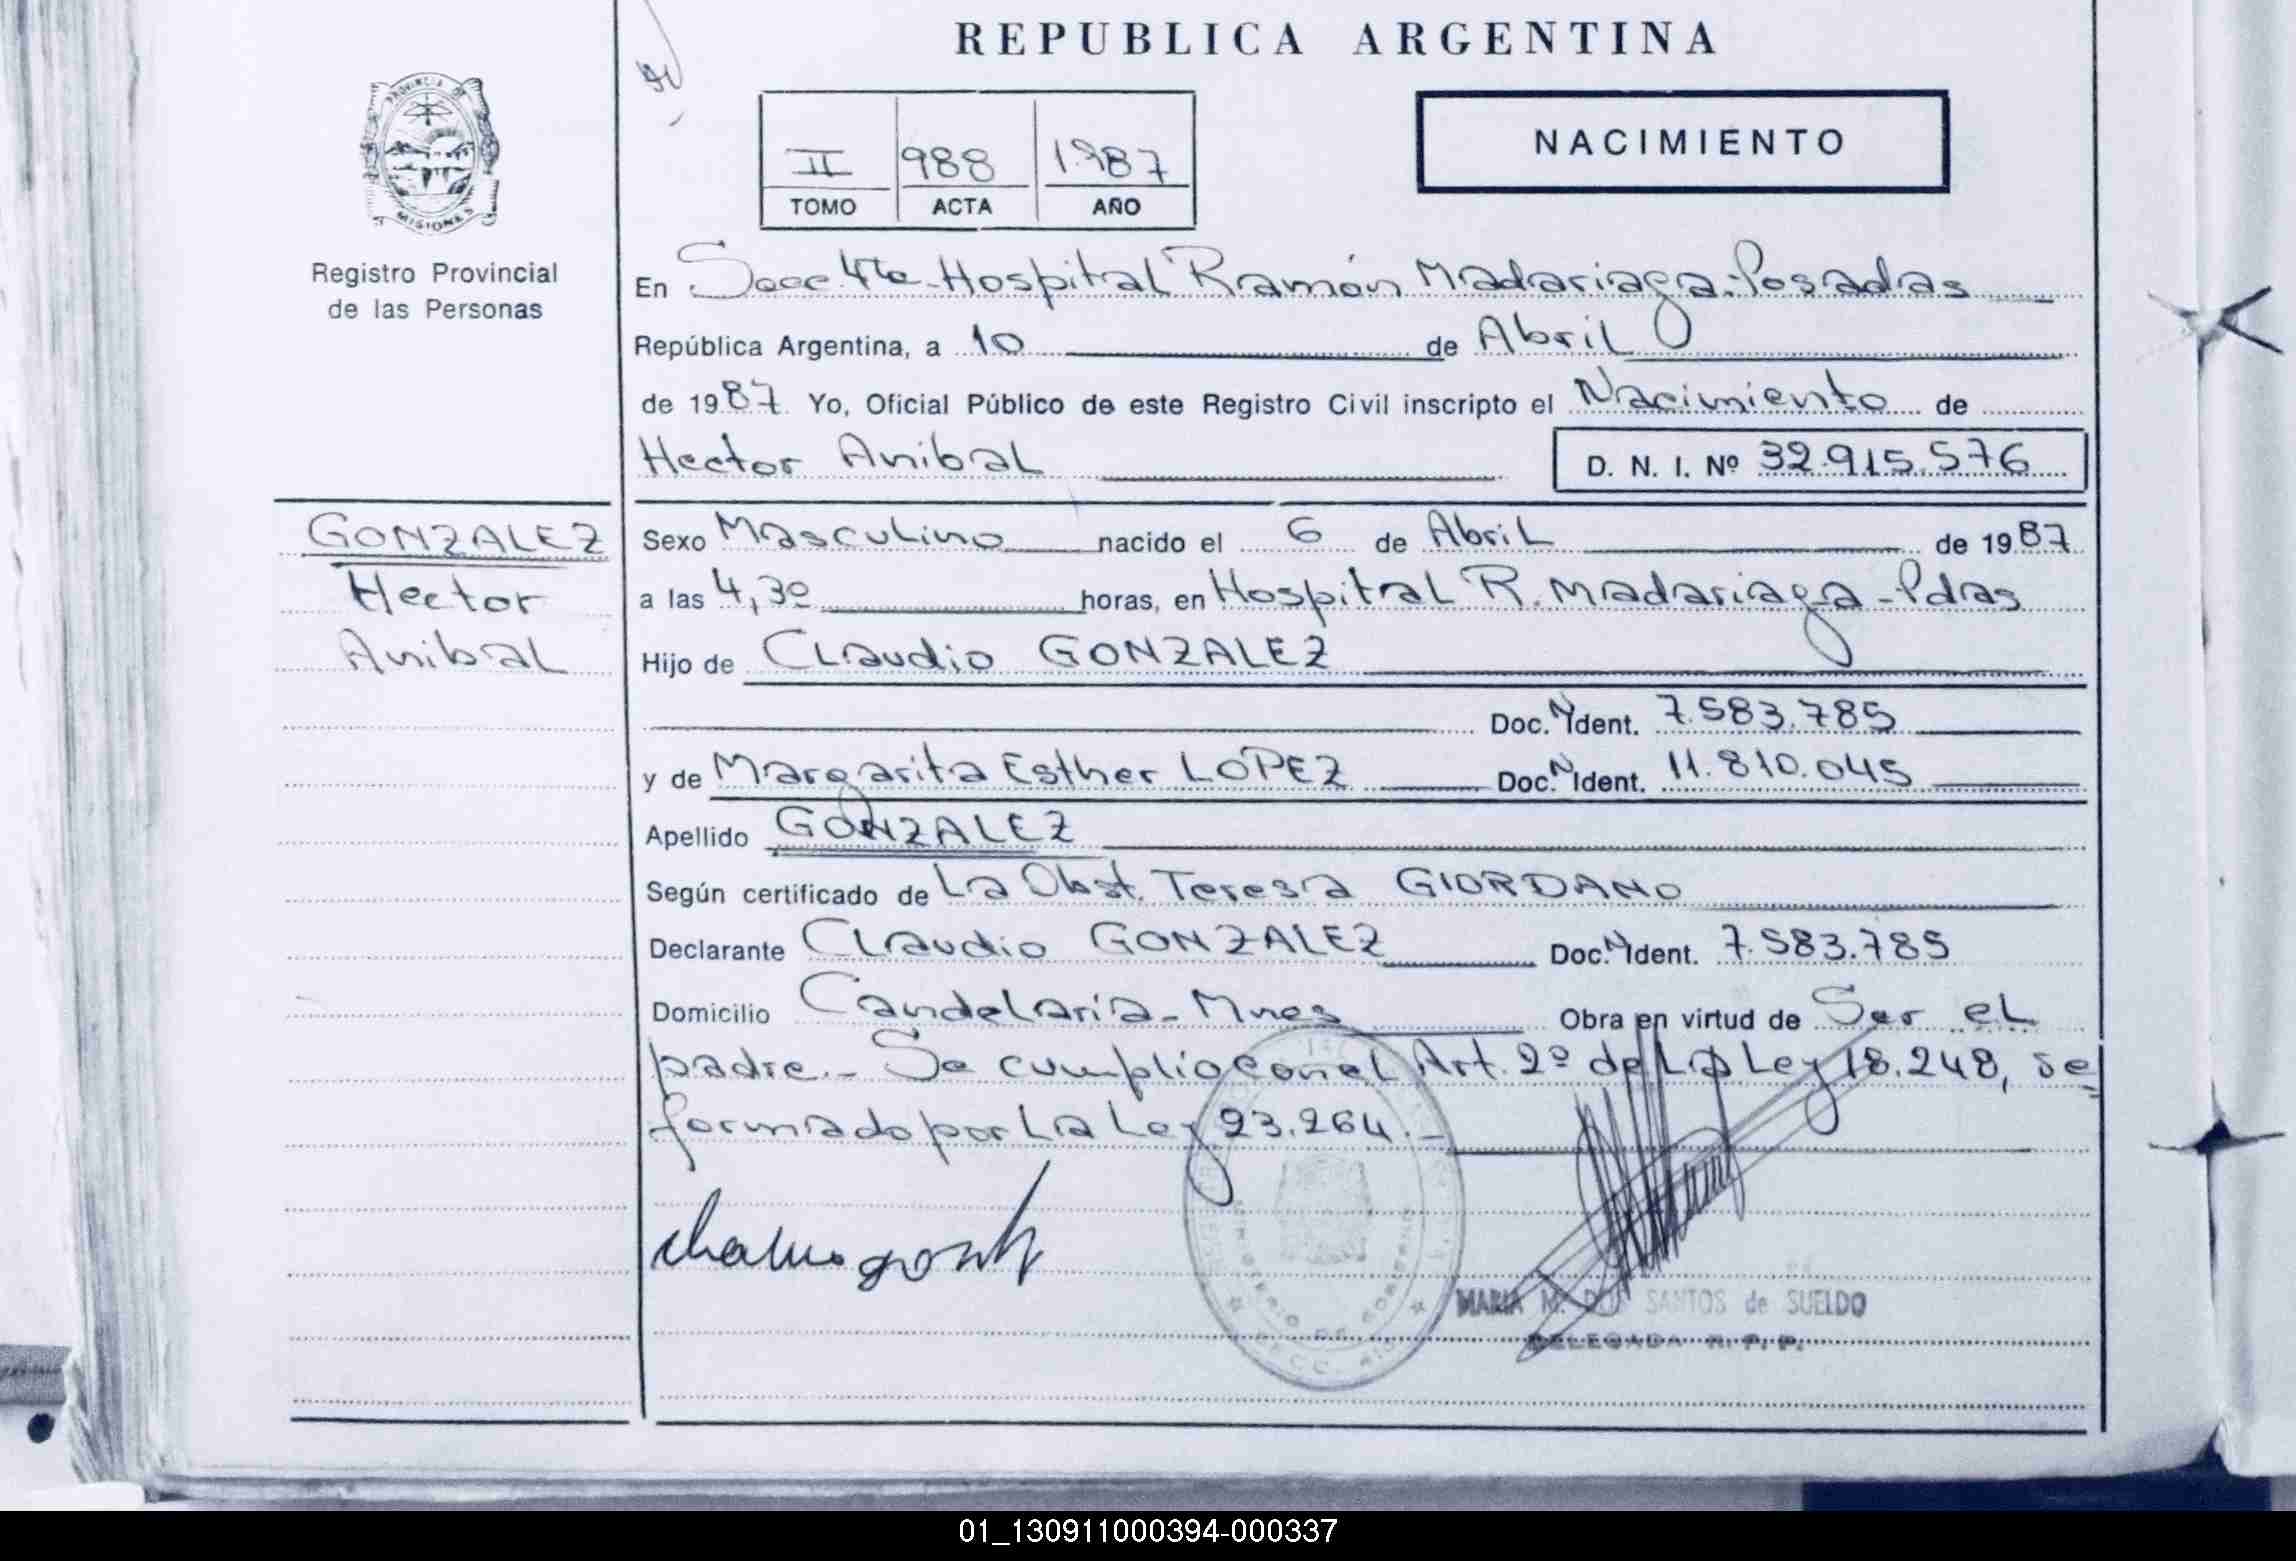 REPUBLICA ARGENTINA
PROVINCIA DE
MISIONES
Registro Provincial
de las Personas
II 988 1987
TOMO ACTA AÑO
NACIMIENTO
En Secc 4ta. Hospital Ramón Madariaga-Posadas
República Argentina, a 10 de Abril
de 1987 Yo, Oficial Público de este Registro Civil inscripto el Nacimiento de
Hector Anibal D. N. I. Nº 32.915.576
GONZALEZ
Hector
Anibal
Sexo Masculino nacido el 6 de Abril de 1987
a las 4,30 horas, en Hospital R. Madariaga-Pdas
Hijo de Claudio GONZALEZ
Doc. N Ident. 7.583.785
y de Margarita Esther LOPEZ Doc. N Ident. 11.810.045
Apellido GONZALEZ
Según certificado de La Obst. Teresa GIORDANO
Declarante Claudio GONZALEZ Doc. N Ident. 7.583.785
Domicilio Candelaria-Mnes Obra en virtud de Ser el
padre.- Se cumplio con el Art. 2º de La Ley 18.248, se
formado por La Ley 23.264.-
MARIA M. DOS SANTOS de SUELDO
DELEGADA R. P. P.
01_130911000394-000337